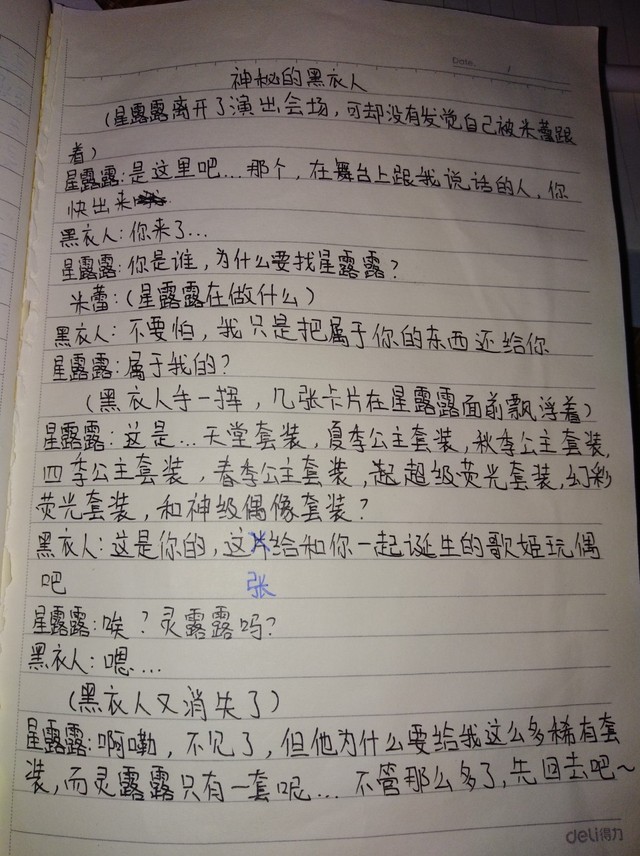 Date /
神秘的黑衣人
(星露露离开了演出会场,可却没有发觉自己被米蕾跟
着)
星露露:是这里吧...那个,在舞台上跟我说话的人,你
快出来
黑衣人:你来了...
星露露:你是谁,为什么要找星露露?
米蕾:(星露露在做什么)
黑衣人:不要怕,我只是把属于你的东西还给你
星露露:属于我的?
(黑衣人手一挥,几张卡片在星露露面前飘浮着)
星露露:这是...天堂套装,夏季公主套装,秋季公主套装,
四季公主套装,春季公主套装,起超级荧光套装,幻彩
荧光套装,和神级偶像套装?
黑衣人:这是你的,这片给和你一起诞生的歌姬玩偶
吧 张
星露露:唉?灵露露吗?
黑衣人:嗯...
(黑衣人又消失了)
星露露:啊嘞,不见了,但他为什么要给我这么多稀有套
装,而灵露露只有一套呢...不管那么多了,先回去吧~
deli得力